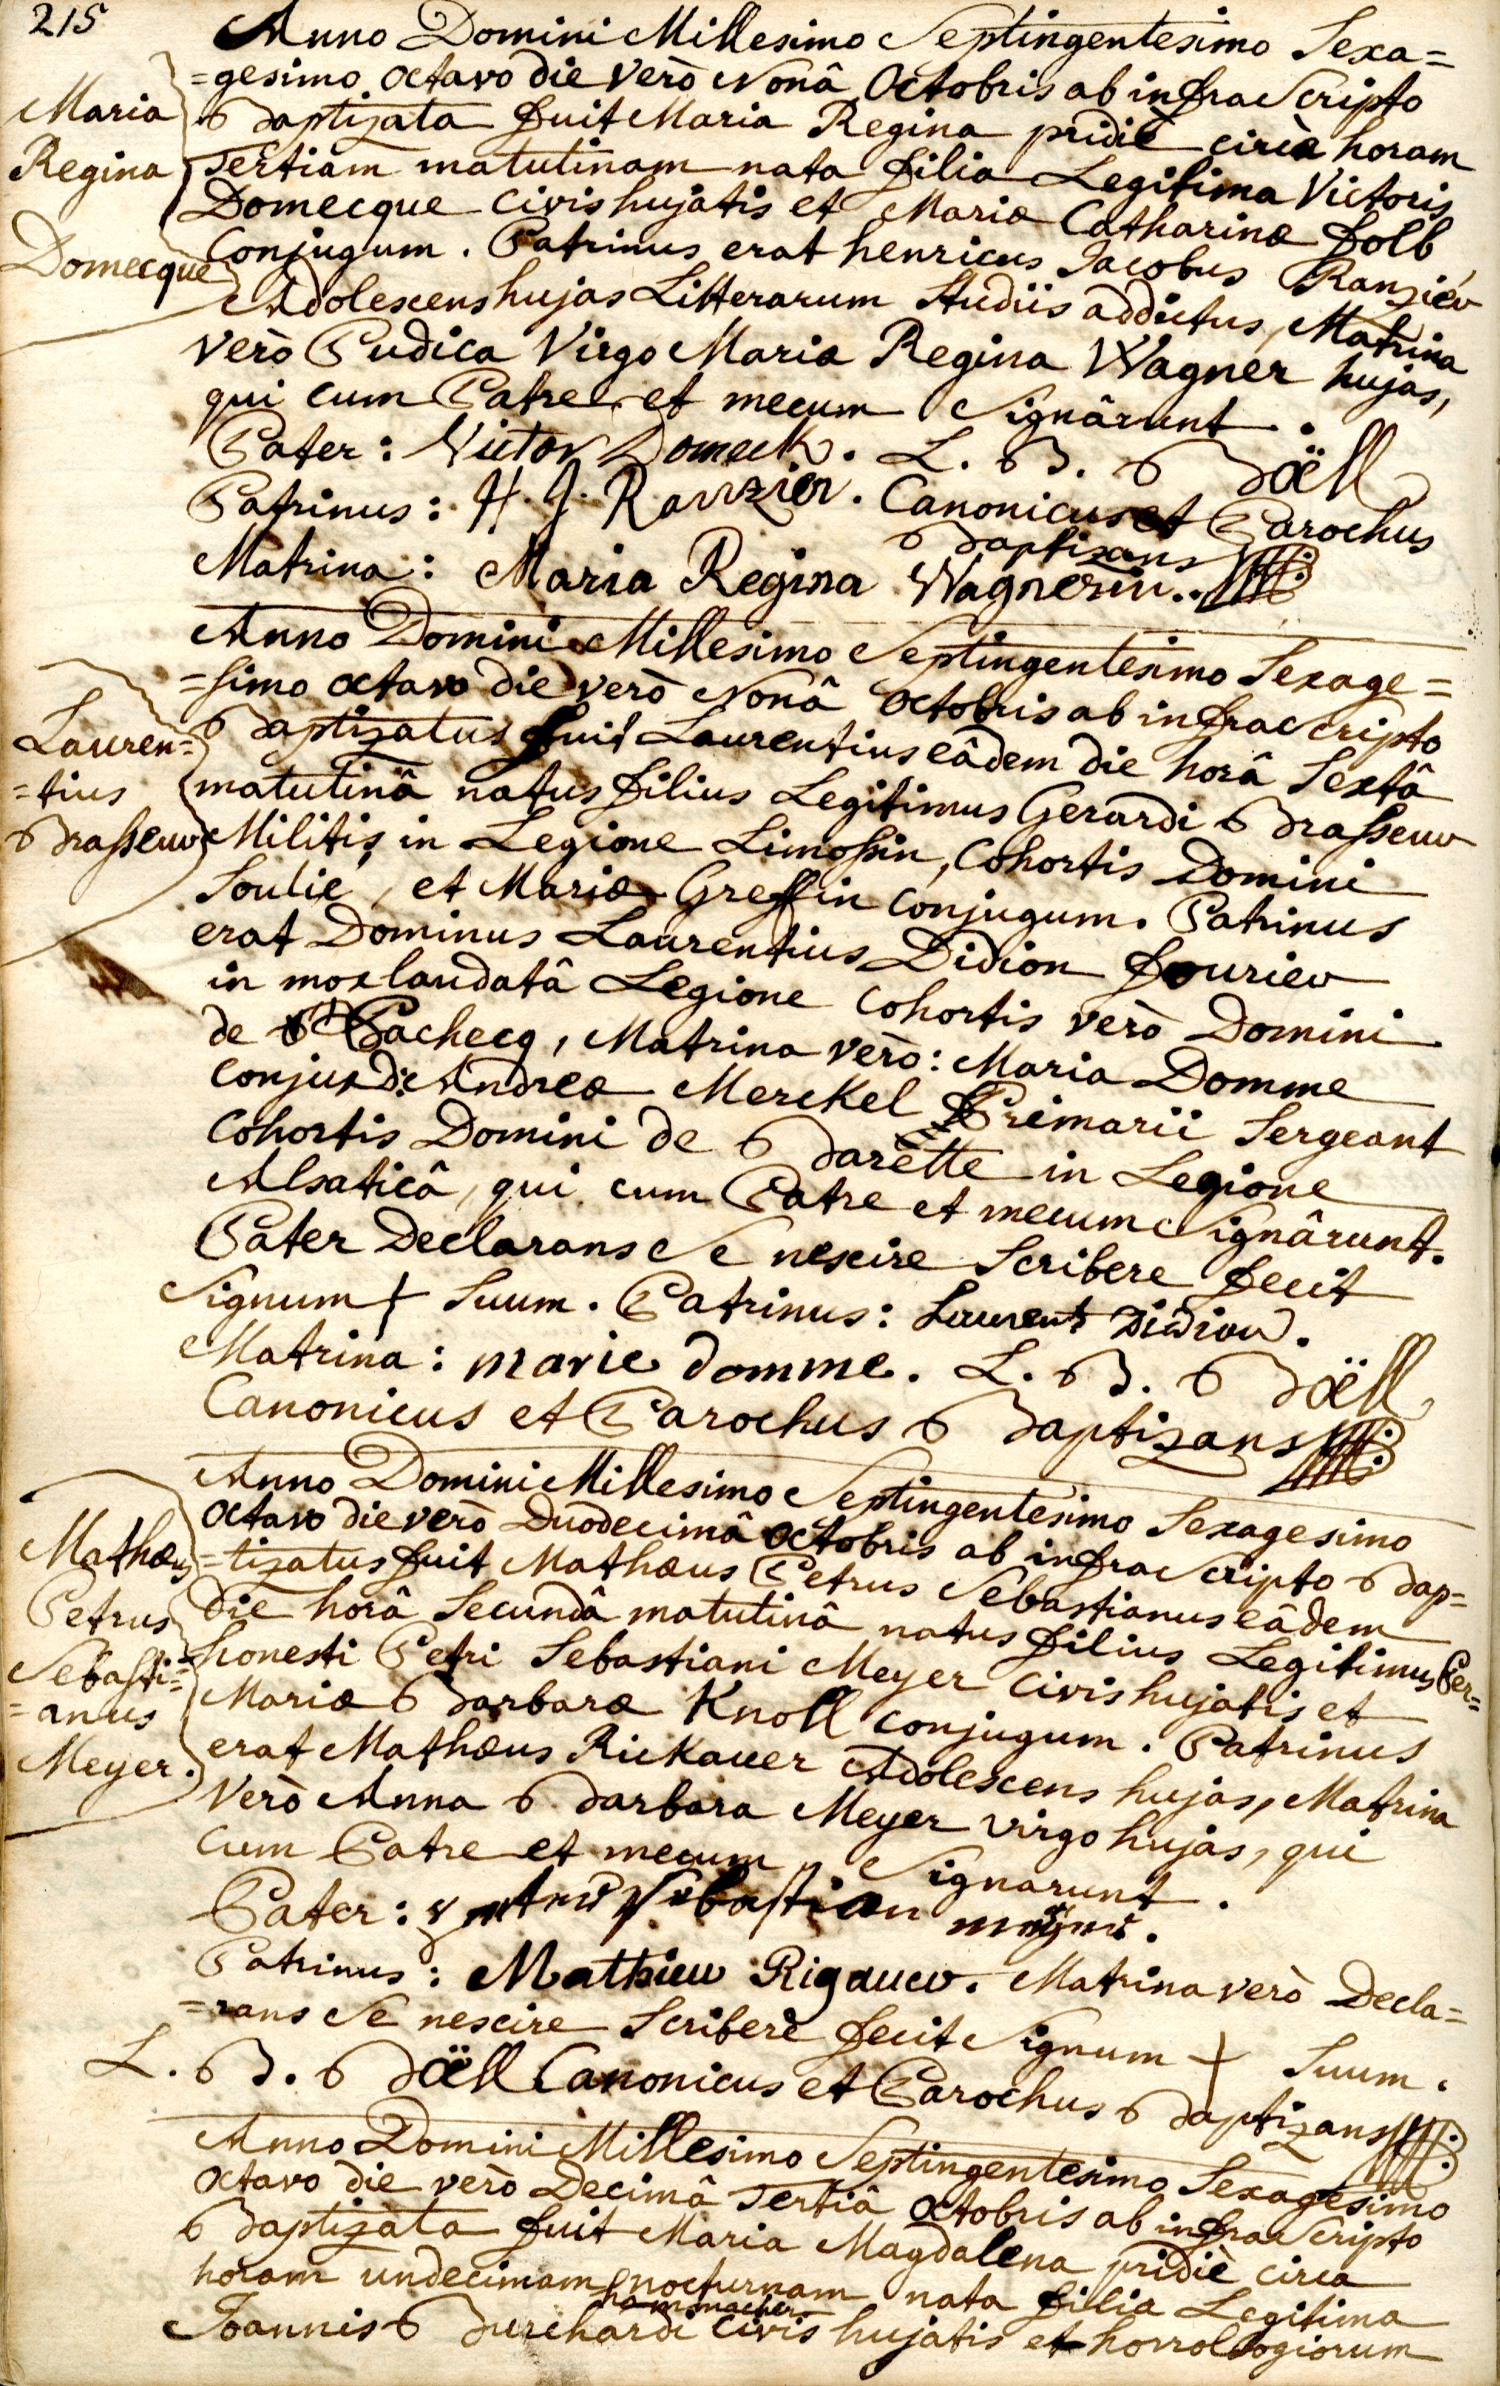 215
Anno Domini Millesimo Septingentesimo Sexa=
=gesimo octavo die verò Nonâ Octobris ab infra Scripto
Maria
Baptizata fuit Maria Regina pridiè circa horam
Regina
Tertiam matutinam nata filia Legitima Victoris
Domecque civis hujatis et Mariæ Catharinæ folb
Domecque
Conjugum. Patrinus erat henricus Jacobus Ranziér
Adolescens hujas Litterarum Studiis addictus, Matrina
verò Pudica Virgo Maria Regina Wagner hujas,
qui cum Patre et mecum Signârunt.
Pater: Victor Domeck. L. B. Böell
Patrinus: H. J. Ranzier. Canonicus et Parochus
Baptizans
Matrina: Maria Regina Wagnerin..
Anno Domini Millesimo Septingentesimo Sexage=
=simo octavo die verò Nonâ Octobris ab infra Scripto
Lauren=
Baptizatus fuit Laurentius eâdem die horâ Sextâ
=tius
matutinâ natus filius Legitimus Gerardi Brasseur
Brasseur
Militis in Legione Limossin, Cohortis Domini
Soulié, et Mariæ Greffin conjugum. Patrinus
erat Dominus Laurentius Didion fourier
in mox laudatâ Legione Cohortis verò Domini
de Pachecq, Matrina verò: Maria Domme
conjux Andreæ Merckel Primarii Sergeant
Cohortis Domini de Barètte in Legione
Alsaticâ, qui cum Patre et mecum Signârunt.
Pater Declarans Se nescire Scribere fecit
Signum + Suum. Patrinus: Laurent Didion.
Matrina: marie domme. L. B. Böell
Canonicus et Parochus Baptizans
Anno Domini Millesimo Septingentesimo Sexagesimo
octavo die verò Duodecimâ octobris ab infra Scripto Bap=
Mathæus
=tizatus fuit Mathæus Petrus Sebastianus eâdem
Petrus
die horâ Secundâ matutinâ natus filius Legitimus Per=
Sebasti=
honesti Petri Sebastiani Meyer civis hujatis et
=anus
Mariæ Barbaræ Knoll conjugum. Patrinus
Meyer.
erat Mathæus Rickauer Adolescens hujas, Matrina
verò Anna Barbara Meyer virgo hujas, qui
cum Patre et mecum Signarunt.
Pater: Sebastian
Patrinus: Mathieu Rigauer. Matrina verò Decla=
=rans Se nescire Scribere fecit Signum + Suum.
L. B. Böell Canonicus et Parochus Baptizans
Anno Domini Millesimo Septingentesimo Sexagesimo
octavo die verò Decimâ Tertiâ octobris ab infra Scripto
Baptizata fuit Maria Magdalena pridiè circa
horam undecimam nocturnam nata filia Legitima
hammacher
Joannis Burchardi civis hujatis et horrologiorum